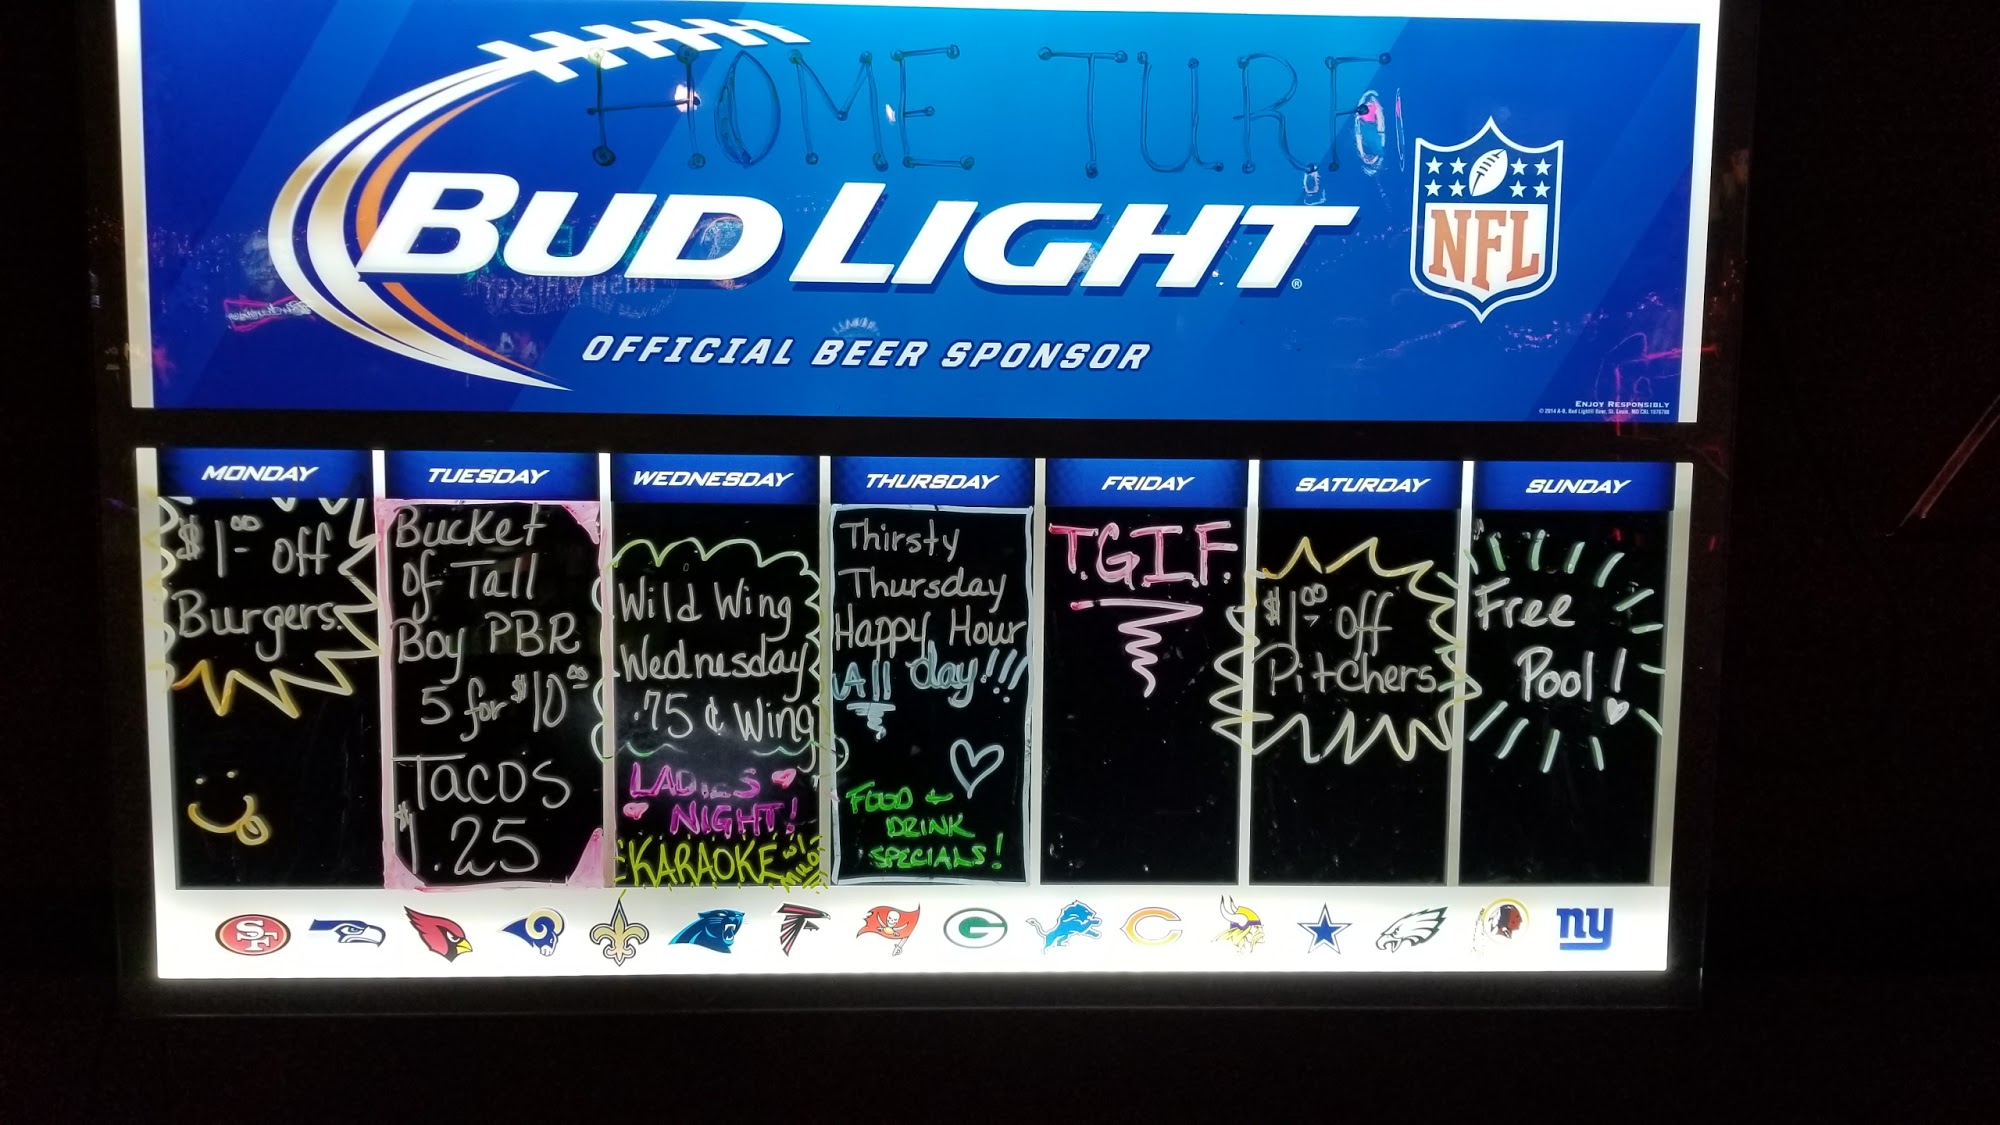 HOME TURF
BUD LIGHT®
NFL
OFFICIAL BEER SPONSOR
ENJOY RESPONSIBLY
MONDAY
$1.00 off
Burgers.
TUESDAY
Bucket
Of Tall
Boy PBR
5 for $10.00
TACOS
$1.25
WEDNESDAY
Wild Wing
Wednesday
.75 ¢ Wing
LADIES
NIGHT!
KARAOKE w/
THURSDAY
Thirsty
Thursday
Happy Hour
All day!!!
FOOD +
DRINK
SPECIALS!
FRIDAY
T.G.I.F.
SATURDAY
$1.00 off
Pitchers
SUNDAY
Free
Pool!
SF
G
C
ny